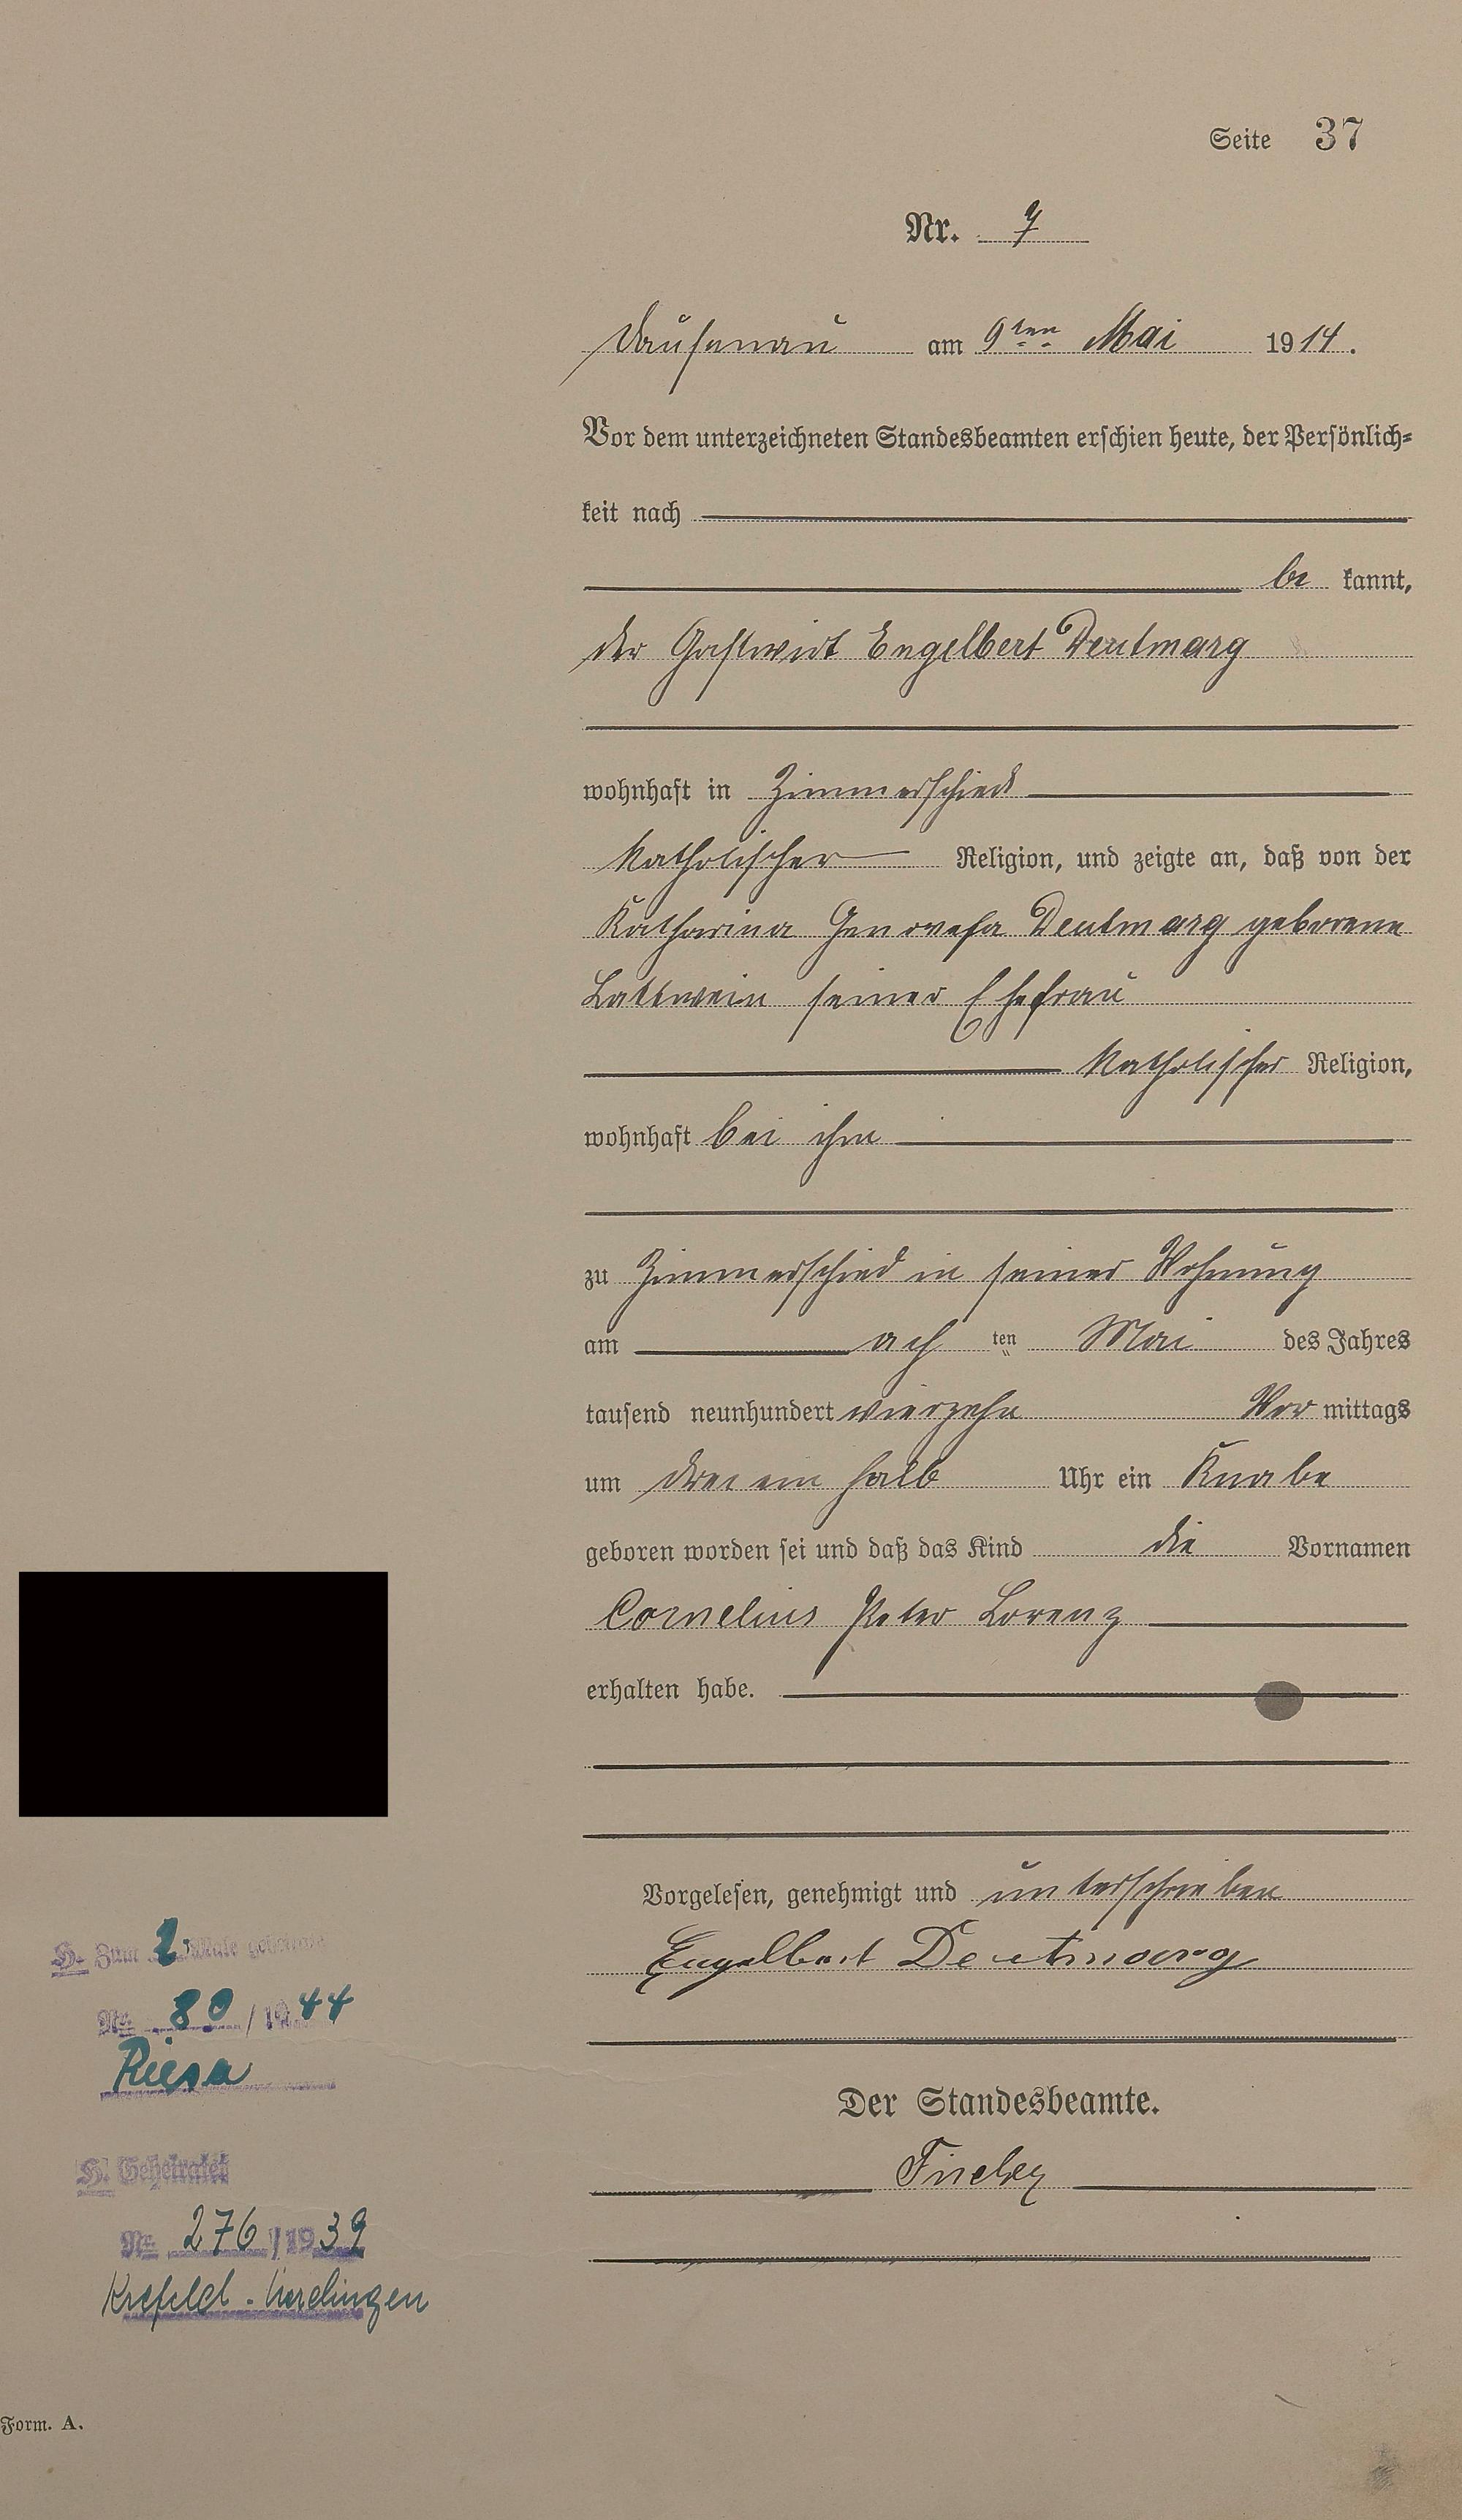 Seite 37
Nr. 7
Dausenau am 9ten Mai 1914.
Vor dem unterzeichneten Standesbeamten erschien heute, der Persönlich=
keit nach
be kannt,
der Gastwirt Engelbert Deutmarg
wohnhaft in Zimmerschied
katholischer Religion, und zeigte an, daß von der
Katharina Genovefa Deutmarg geborene
Lattwein seiner Ehefrau
katholischer Religion,
wohnhaft bei ihm
zu Zimmerschied in seiner Wohnung
am ach ten Mai des Jahres
tausend neunhundert vierzehn Vor mittags
um drei ein halb Uhr ein Knabe
geboren worden sei und daß das Kind die Vornamen
Cornelius Peter Lorenz
erhalten habe.
Vorgelesen, genehmigt und unterschrieben
Engelbert Deutmarg
Der Standesbeamte.
H. Zum 2. Male geheiratet
Nr. 80 / 1944
Riesa
H. Geheiratet
Nr. 276 / 1939
Krefeld-Uerdingen
Form. A.